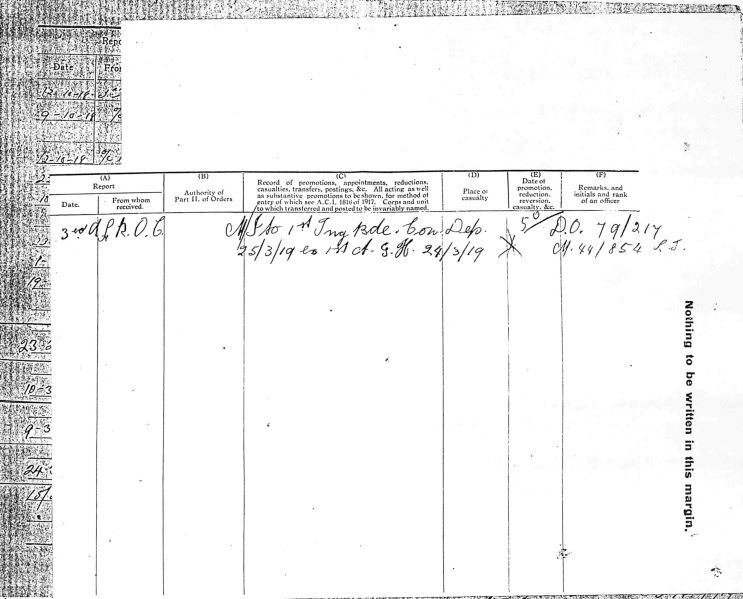 Repo
Date
Fro
12-10-18
9-10-18
13-10-18
(A)
Report
Date.
From whom received.
(B)
Authority of
Part II. of Orders
(C)
Record of promotions, appointments, reductions,
casualties, transfers, postings, &c. All acting as well
as substantive promotions to be shown, for method of
entry of which see A.C.I. 1816 of 1917. Corps and unit
to which transferred and posted to be invariably named.
(D)
Place of
casualty
(E)
Date of
promotion,
reduction,
reversion,
casualty, &c.
(F)
Remarks, and
initials and rank
of an officer
3rd R.O.C. to 1st Trng Bde. Con. Dep. D.O. 79/217
25/3/19 ex 1st A.G.H. 24/3/19 M. 44/854
Nothing to be written in this margin.